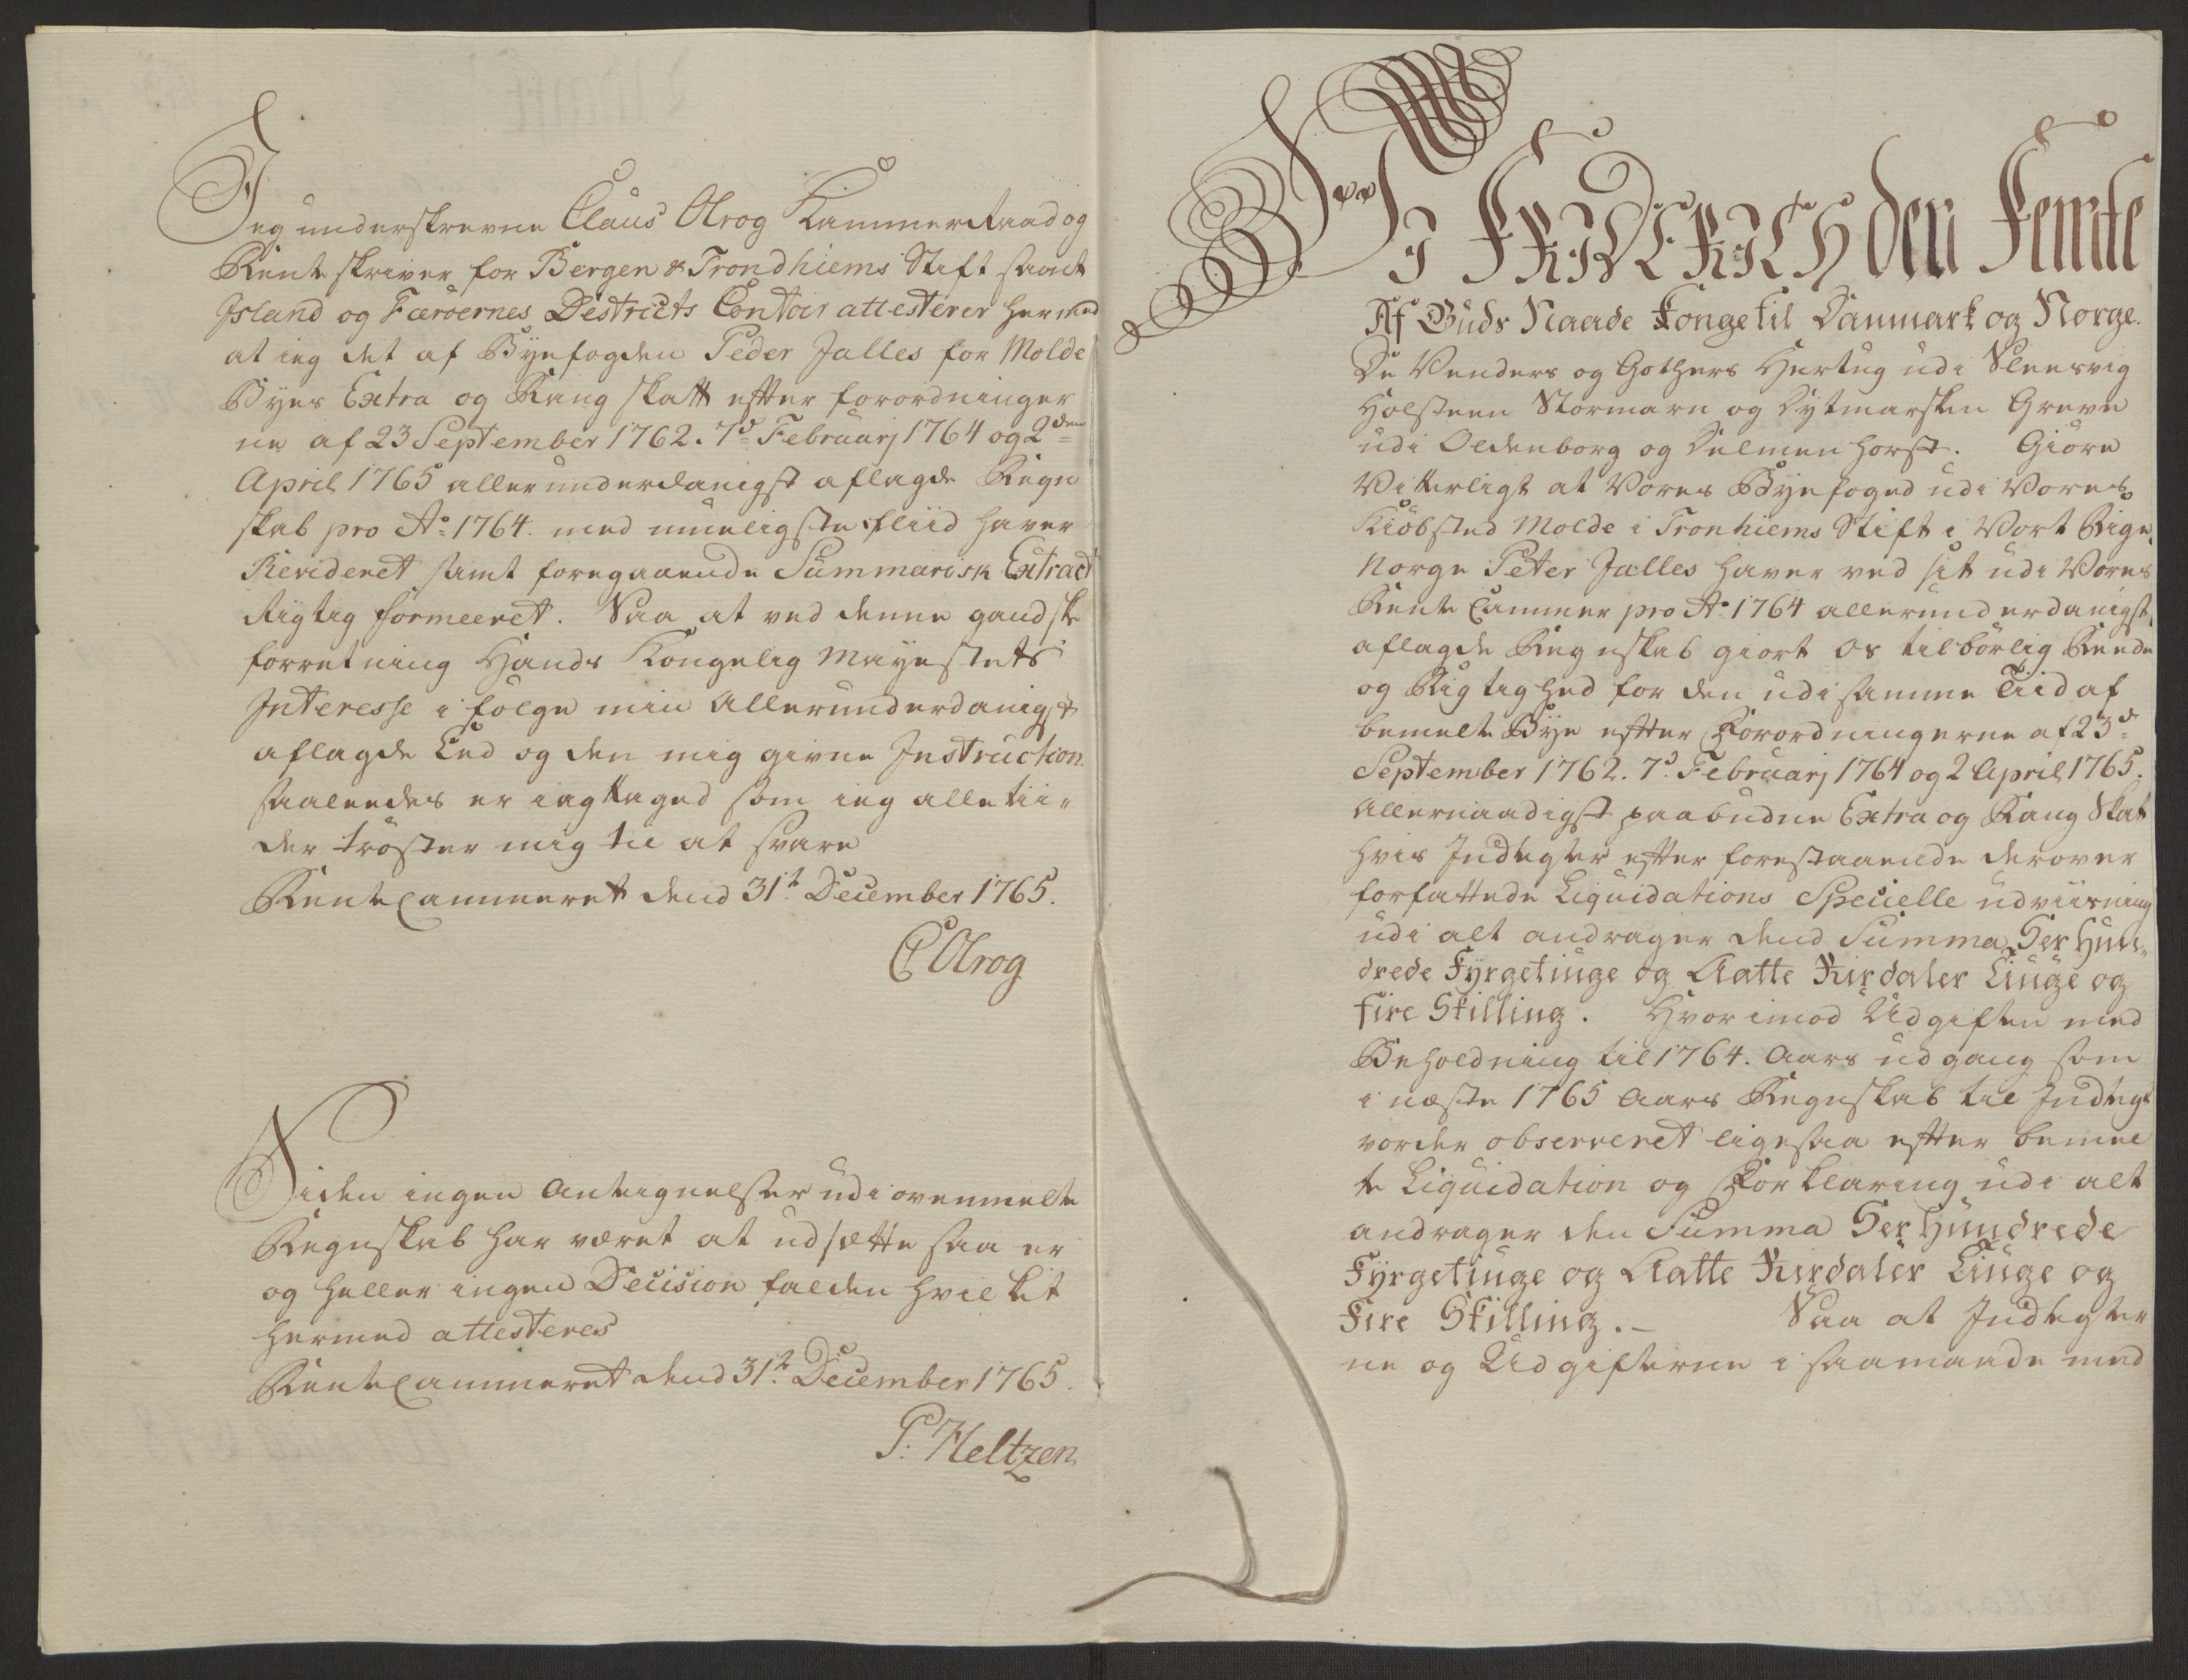 Jeg underskrevne Claus Olrog Kammer Raad og
Renteskriver for Bergen & Trondhiems Stift samt
Island og Færøernes Destricts Contoir attesterer hermed
at ieg det af Byefogden Peder Jalles for Molde
Byes Extra og Rang skatt efter forordninger
ne af 23 September 1762. 7d Februarj 1764 og 2den
April 1765 allerunderdanigst aflagde Regn
skab pro Ao 1764. med mueligste fliid haver
Revideret samt foregaaende Summarisk Extract
Rigtig formeeret. Saa at ved denne gandske
forretning Hands Kongelig Mayestets
Interesse i følge min Allerunderdanigst
aflagde Eed og den mig givne Instruction
saaleedes er iagttaged som ieg alle tii-
der trøster mig til at svare
RenteCammeret dend 31t December 1765.
C Olrog
Siden ingen Anteignelser udi ovenmelte
Regnskab har været at udsætte saa er
og heller ingen Decision falden hvilket
hermed attesteres
RenteCammeret dend 31t December 1765.
P: Heltzen
VI FRIDERICH den Femte
Af Guds Naade Konge til Danmark og Norge.
De Venders og Gothers Hertug udi Sleesvig
Holsteen Stormarn og Dytmarsken Greve
udi Oldenborg og Delmenhorst. Giøre
Vitterligt at Vores Byefoged udi Vores
Kiøbsted Molde i Tronhiems Stift i Vort Rige
Norge Peter Jalles haver ved sit udi Vores
Rente Cammer pro Ao 1764 allerunderdanigst
aflagde Regnskab giort os tilbørlig Reede
og Rigtighed for den udi samme Tiid af
bemelte Bye efter Forordningerne af 23d
September 1762. 7d Februarj 1764 og 2 April 1765.
Allernaadigst paabudne Extra og Rang Skat
hvis Indtegter efter forestaaende derover
forfattede Liquidations Specielle udviisning
udi alt andrager dend Summa Sex Hun-
drede Fyrgetiuge og Aatte Rixdaler Tiuge og
Fire Skilling. Hvorimod Udgiften med
Beholdning til 1764. Aars udgang som
i næste 1765 Aars Regnskab til Indtegt
vorder observeret ligesaa efter bemel
te Liquidation og Forklaring udi alt
andrager den Summa Sex Hundrede
Fyrgetiuge og Aatte Rixdaler Tiuge og
Fire Skilling. - Saa at Indtegter
ne og Udgifterne i saamaade med